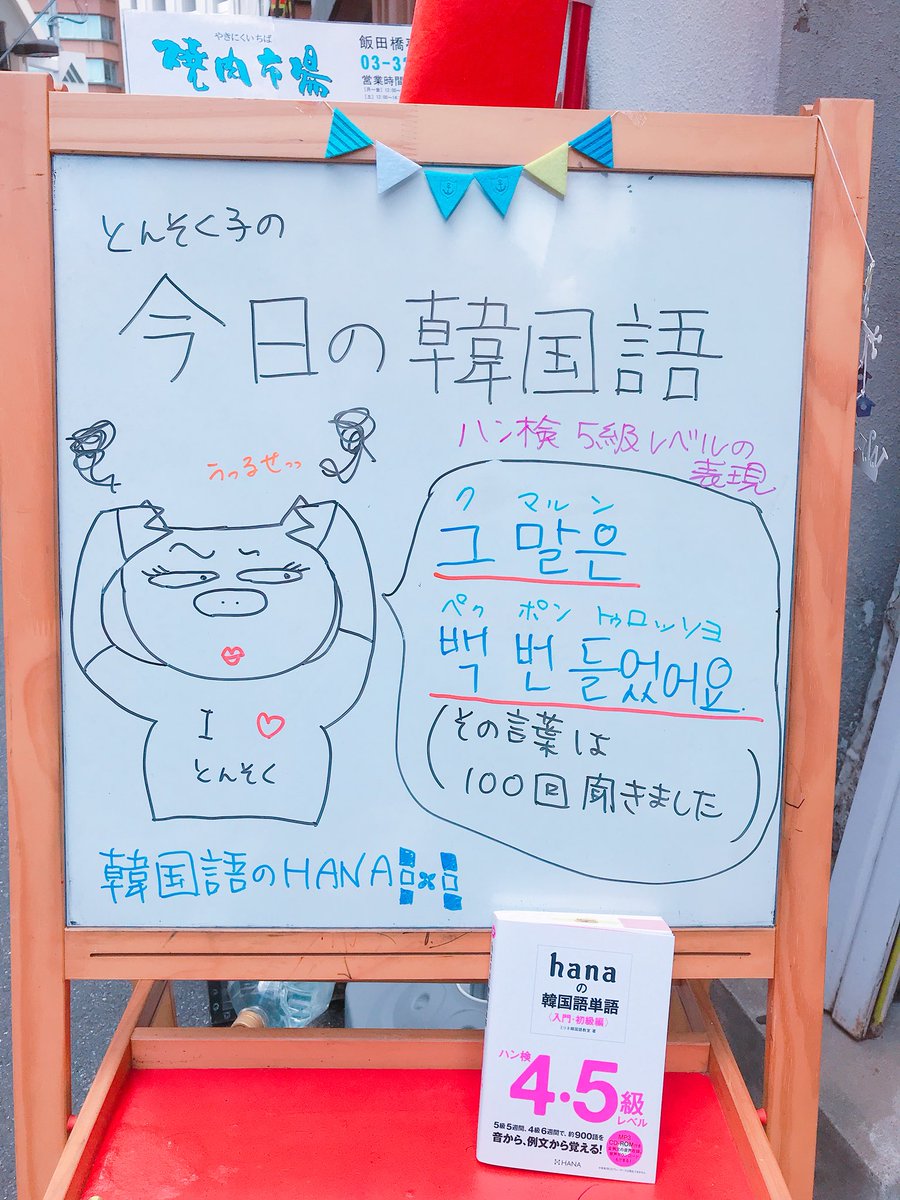 やきにくいちば
焼肉市場
飯田橋
03-3
営業時間
とんそく子の
今日の韓国語
ハン検 5級レベルの
表現
うっるせっっ
ク マルン
그 말은
ペク ポン トゥロッソヨ
백 번 들었어요.
(その言葉は
100回聞きました)
I ♡
とんそく
韓国語のHANA
hana
の
韓国語単語
〈入門・初級編〉
ミリネ韓国語教室 著
ハン検
4・5級
レベル
5級5週間、4級6週間で、約900語を
音から、例文から覚える!
MP3
CD-ROM付き
HANA